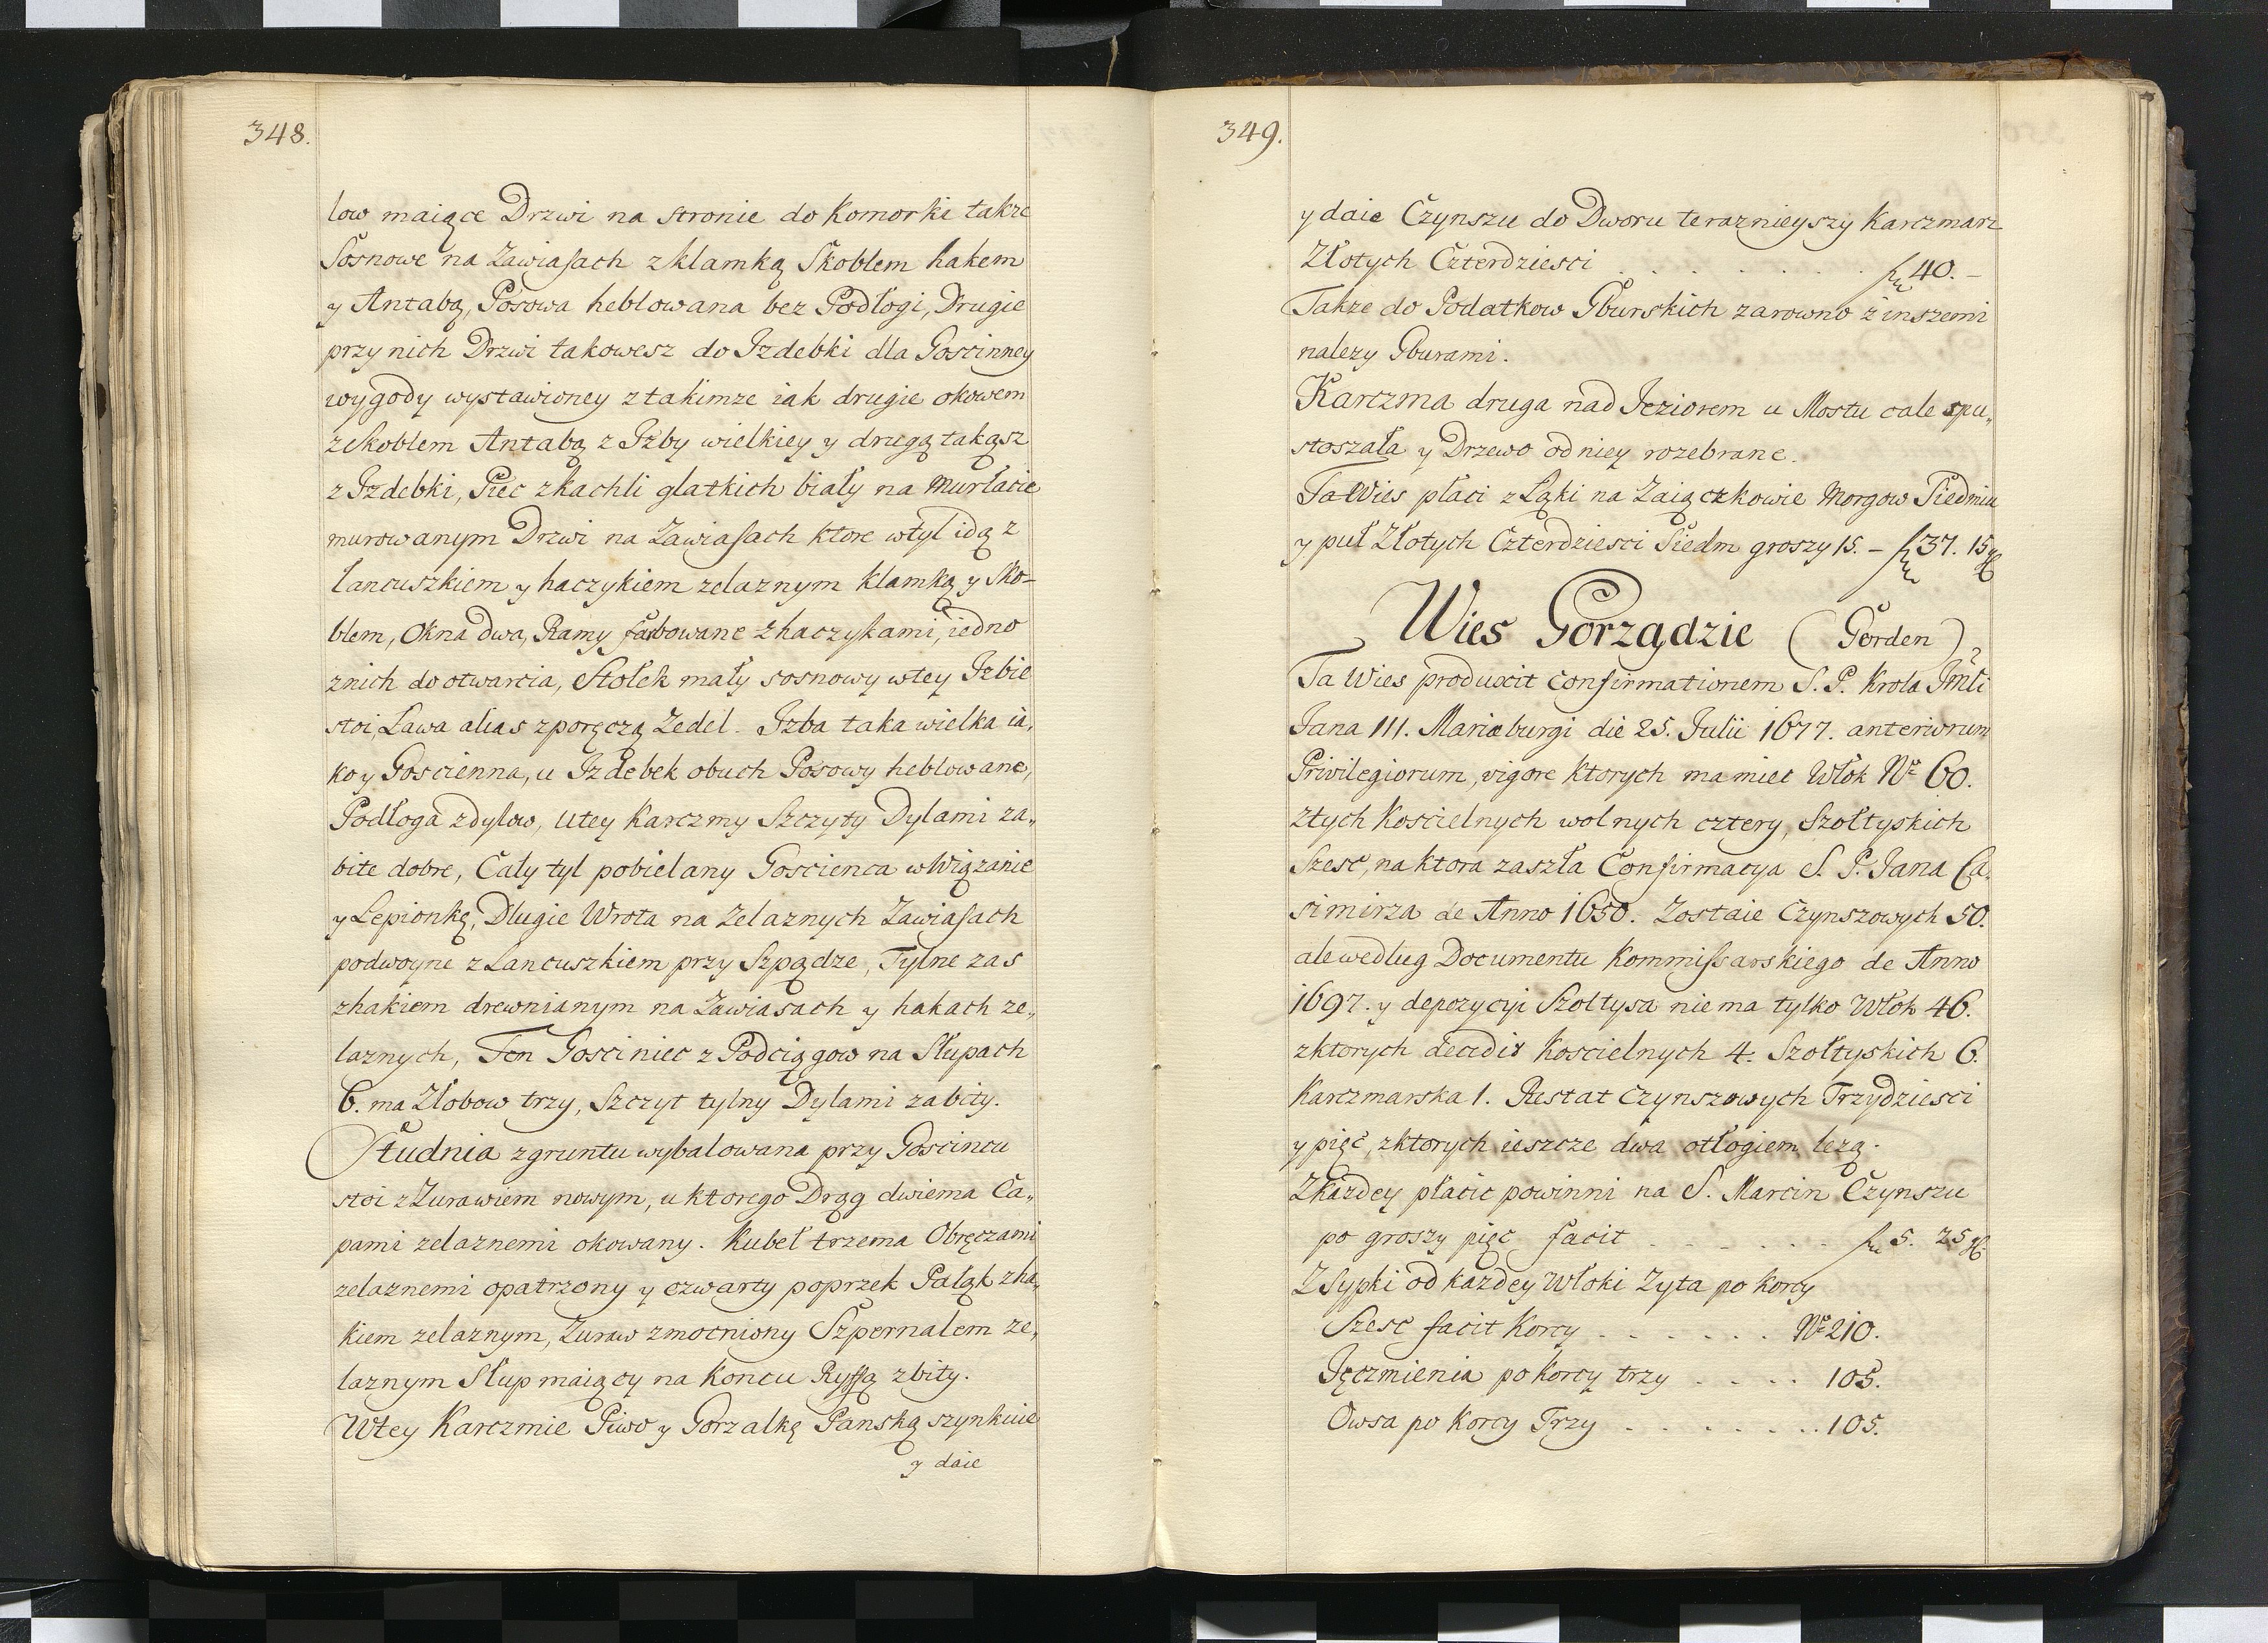 348.
low maiące Drzwi na stronie do Komorki takze
Sosnowe na Zawiasach z klamką Skoblem hakem
y Antabą, Posowa heblowana bez Podłogi, Drugie
przy nich Drzwi takowesz do Izdebki dla Goscinney
wygody wystawioney z takimze iak drugie okowem
zeskoblem Antabą z Izby wielkiey y drugą takąsz
z Izdebki, Piec z kachli glatkich biały na Murłacie
murowanym Drzwi na Zawiasach ktore w tył idą z
lancuszkiem y haczykiem zelaznym klamką y Sko-
blem, Okna dwa, Ramy farbowane z haczykami, iedno
z nich do otwarcia, Stołek mały sosnowy w tey Izbie
stoi, Ława alias z poręczą Zedel. Izba taka wielka ia„
ko y Goscienna, u Izdebek obuch Posowy heblowane,
Podłoga z dylow, u tey Karczmy Szczyty Dylami za„
bite dobre, Cały tyl pobielany Goscienca w Wiązanie
y Lepionkę, Dlugie Wrota na Zelaznych Zawiasach
podwoyne z Lancuszkiem przy Szpądze, Tylne zas
z hakiem drewnianym na Zawiasach y hakach ze„
laznych, Ten Gosciniec z Podciągow na Słupach
6. ma Złobow trzy, Szczyt tylny Dylami zabity.
Studnia z gruntu wybalowana przy Goscincu
stoi z Zurawiem nowym, u ktorego Drąg dwiema Ca„
pami zelaznemi okowany. Kubeł trzema Obręczami
zelaznemi opatrzony y czwarty poprzek Pałąk z ha„
kiem zelaznym, Zuraw zmocniony Szpernalem ze„
laznym Słup maiący na Koncu Ryssą zbity.
W tey Karczmie Piwo y Gorzalkę Panską szynkuie
y daie
349.
y daie Czynszu do Dworu teraznieyszy Karczmarz
Złotych Czterdziesci . . . . . . . f 40. –
Takze do Podatkow Gburskich zarowno z inszemi
nalezy Gburami.
Karczma druga nad Jeziorem u Mostu cale spu„
stoszała y Drzewo od niey rozebrane.
Ta Wies płaci z Łąki na Zaiączkowie Morgow Siedmiu
y puł Złotych Czterdziesci Siedm groszy 15. – f 37. 15 g
Wies Gorządzie (Gorden)
Ta Wies produxit confirmationem S. P. Krola Jmśći
Jana III. Mariaeburgi die 25. Julii 1677. anteriorum
Privilegiorum, vigore ktorych ma miec Włok No 60.
Z tych Koscielnych wolnych cztery, Szołtyskich
Szesc, na ktora zaszła Confirmacya S. P. Jana Ca„
simirza de Anno 1650. Zostaie Czynszowych 50.
ale według Documentu Kommissarskiego de Anno
1697. y depozycyi Szołtysa nie ma tylko Włok 46.
z ktorych decedit Koscielnych 4. Szołtyskich 6.
Karczmarska 1. Restat Czynszowych Trzydziesci
y pięć, z ktorych ieszcze dwa otłogiem lezą.
Z każdey płacic powinni na S. Marcin Czynszu
po groszy pięć facit . . . . . . . f 5. 25 g
Z Sypki od każdey Włoki Zyta po Korcy
Szesc facit Korcy . . . . . . No 210.
Jęczmienia po Korcy trzy . . . . 105.
Owsa po Korcy Trzy . . . . . . . 105.